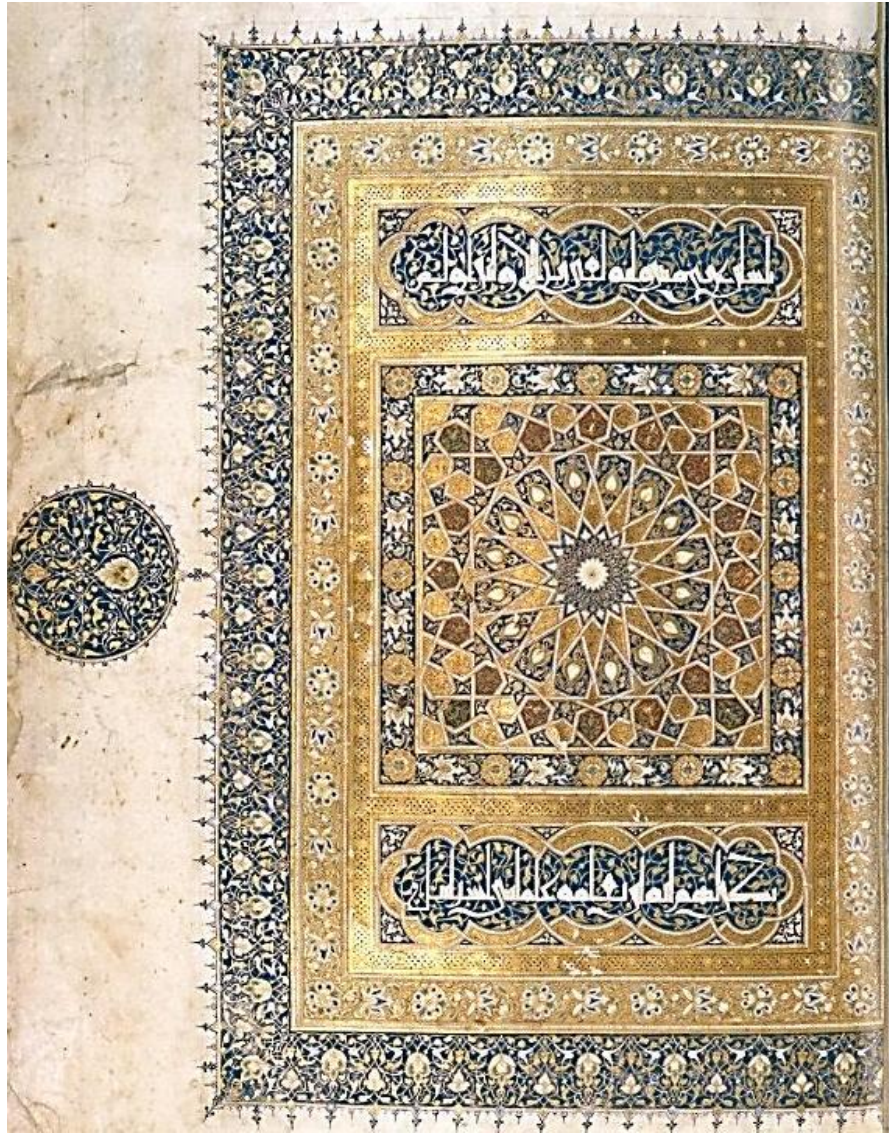 بلسان عربي مبين وانه لفي زبر الاولين اولم
يكن لهم اية ان يعلمه علما بني اسرايل